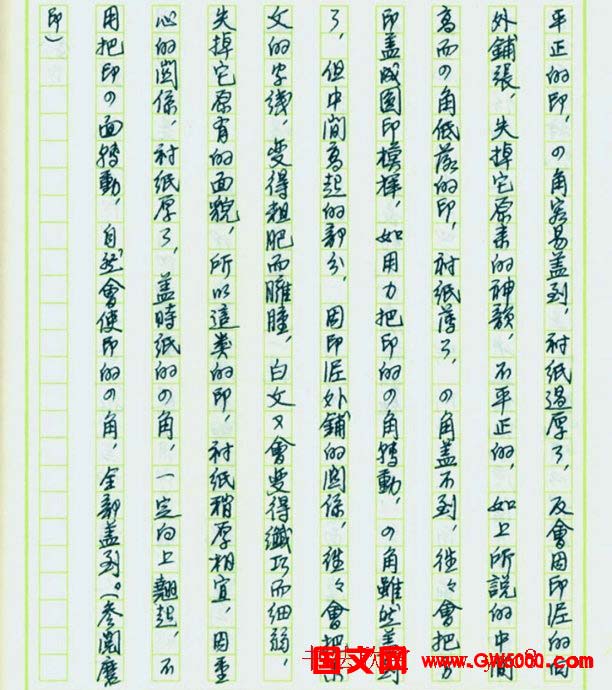 平正的印，四角容易盖到，衬纸過厚了，反會因印泥的向
外鋪張，失掉它原来的神韻，不平正的，如上所説的中間
高而四角低落的印，衬纸薄了，四角盖不到，往々會把方
印盖成圆印模樣，如用力把印的四角轉動，四角雖然盖到
了，但中间高起的部分，因印泥外鋪的関係，往々會把朱
文的字綫，變得粗肥而臃腫，白文又會變得纖巧而细弱，
失掉它原有的面貌，所以這类的印，衬纸稍厚相宜，因重
心的関係，衬纸厚了，盖時纸的四角，一定向上翹起，不
用把印四面轉動，自然會使印的四角，全部盖到。（参閲磨
印）
国文网 www.GW5000.com